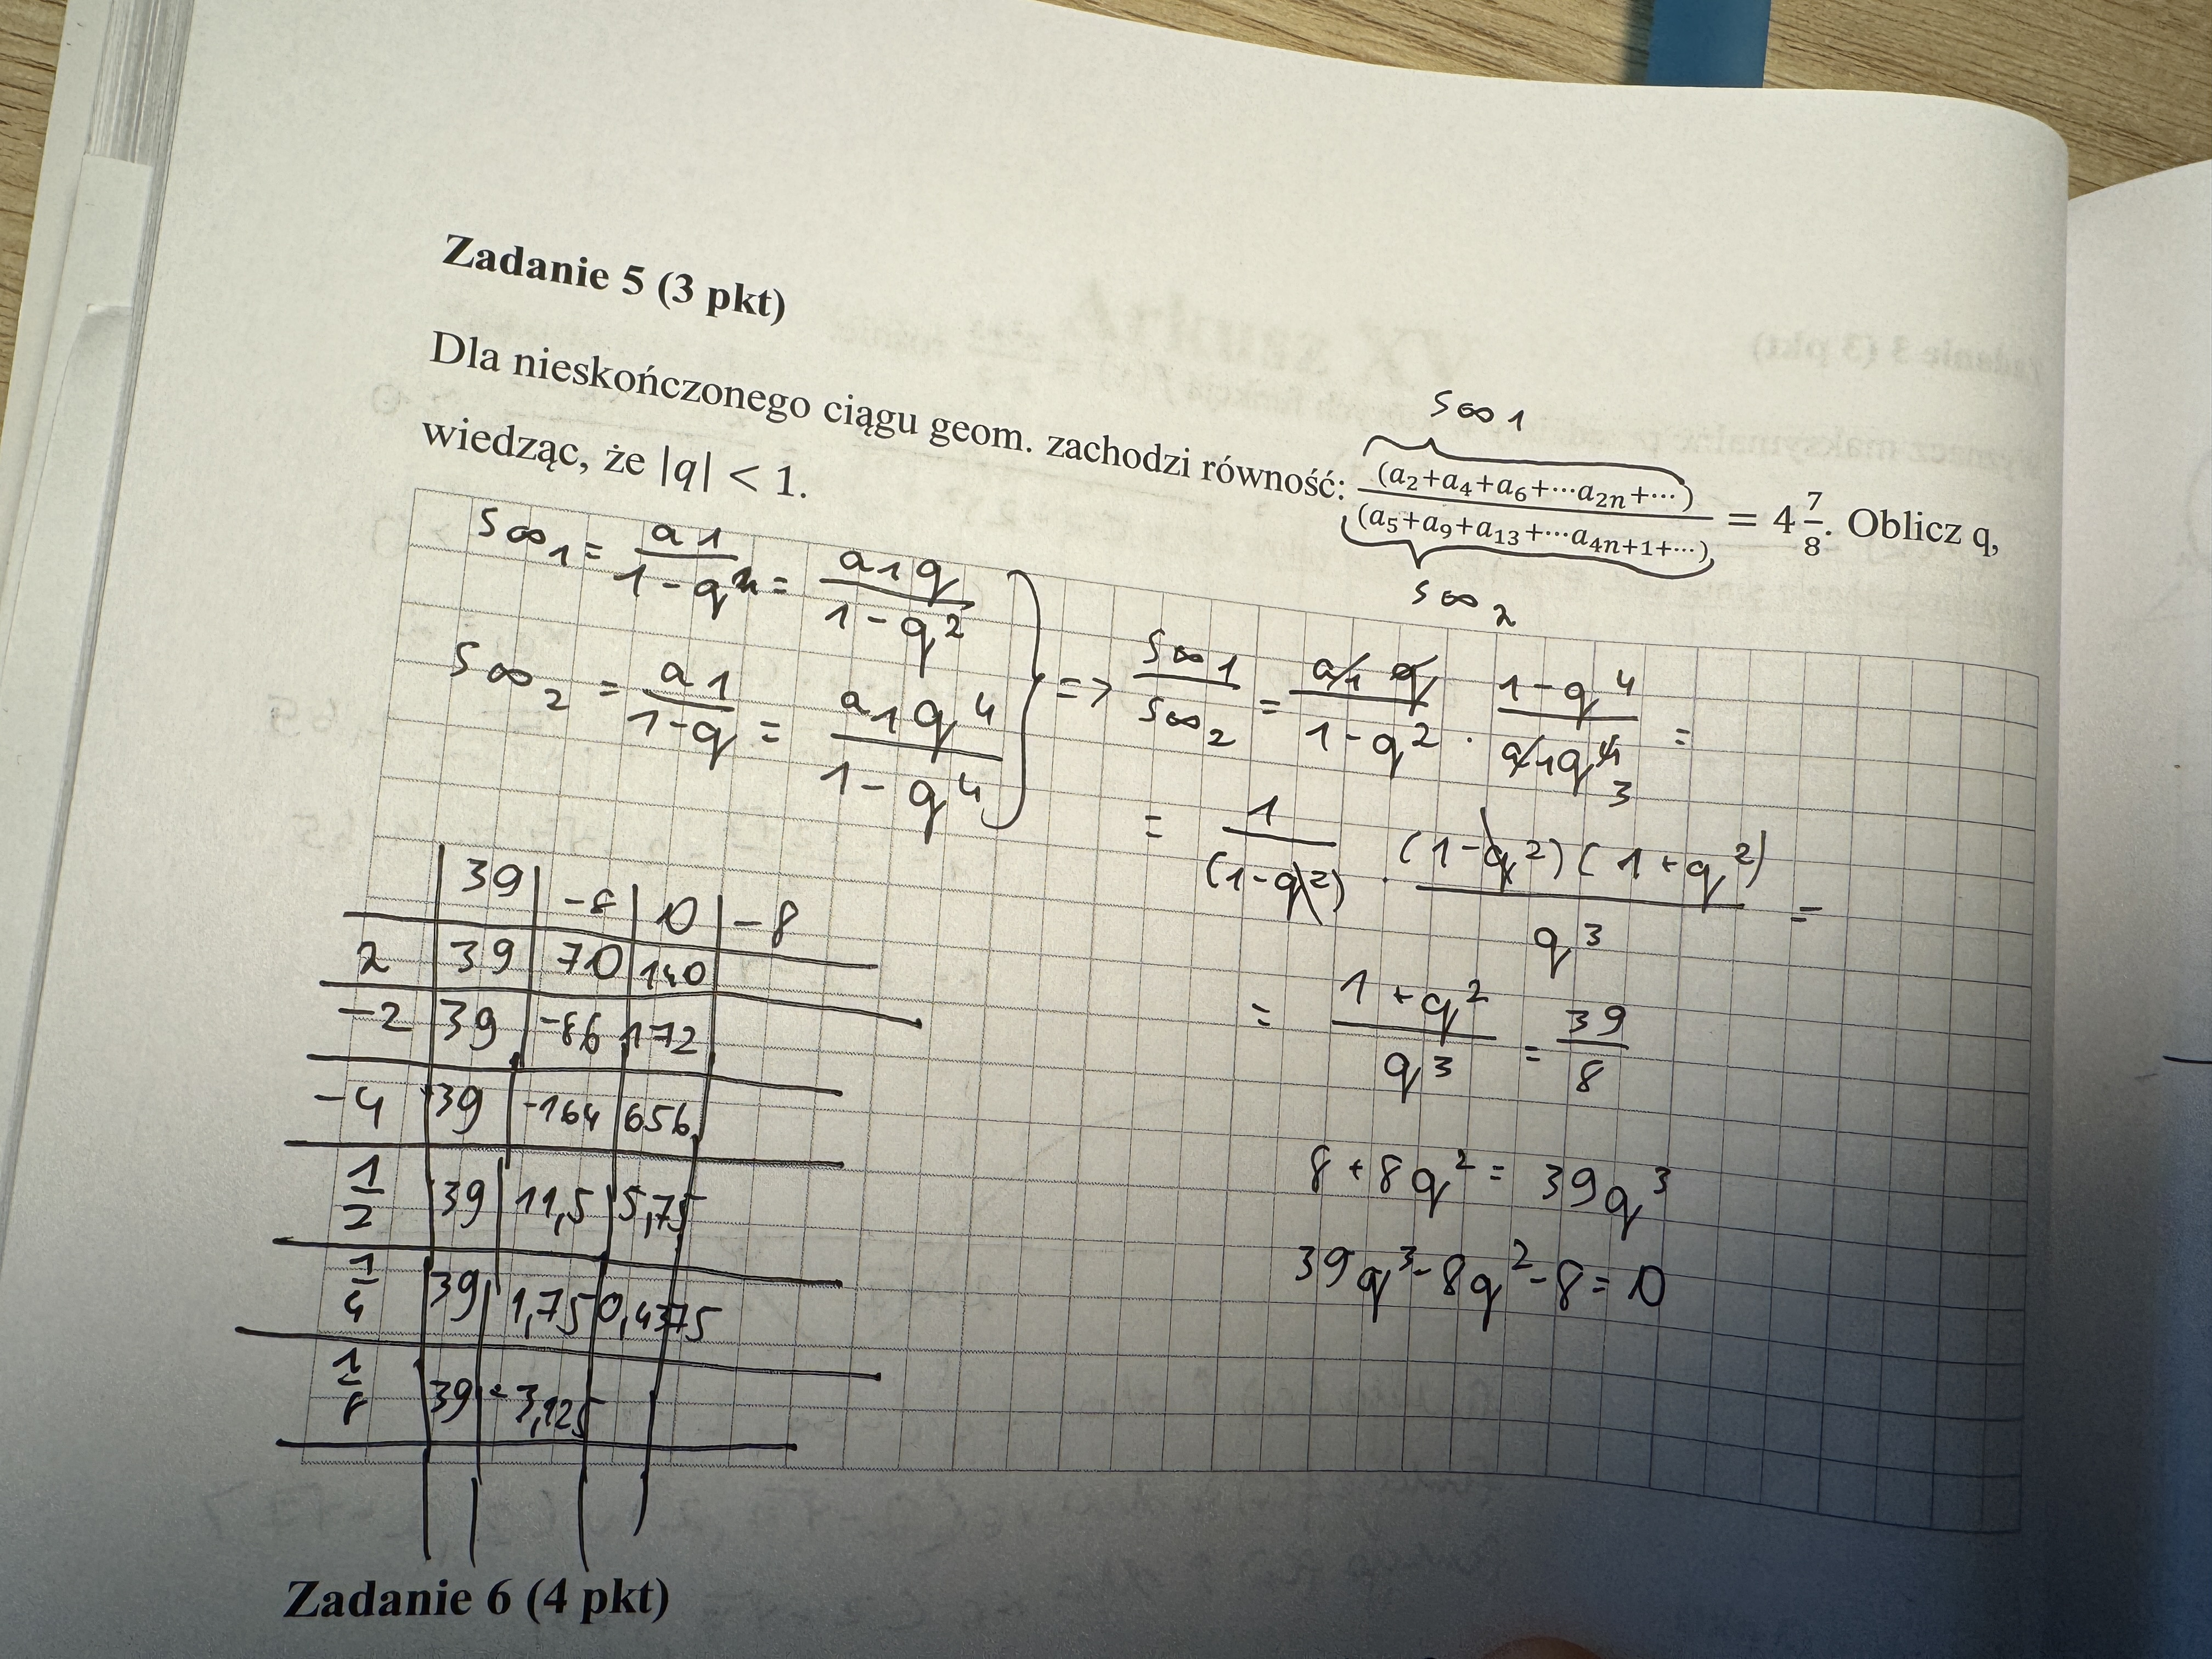 Zadanie 5 (3 pkt)
Dla nieskończonego ciągu geom. zachodzi równość: (a₂+a₄+a₆+⋯a₂ₙ+⋯)/(a₅+a₉+a₁₃+⋯a₄ₙ₊₁+⋯) = 4 7/8. Oblicz q,
wiedząc, że |q| < 1.
S∞1
S∞2
S∞₁ = a1/(1-q) = a₁q/(1-q²)
S∞₂ = a1/(1-q) = a₁q⁴/(1-q⁴)
=> S∞1/S∞₂ = a₁q/(1-q²) · (1-q⁴)/(a₁q⁴) =
3
= 1/(1-q²) · (1-q²)(1+q²)/q³ =
= (1+q²)/q³ = 39/8
8 + 8q² = 39q³
39q³ - 8q² - 8 = 0
| 39 | -8 | 0 | -8
2 | 39 | 70 | 140
-2 | 39 | -86 | 172
-4 | 39 | -164 | 656
1/2 | 39 | 11,5 | 5,75
1/4 | 39 | 1,75 | 0,4375
1/8 | 39 | -3,125
Zadanie 6 (4 pkt)